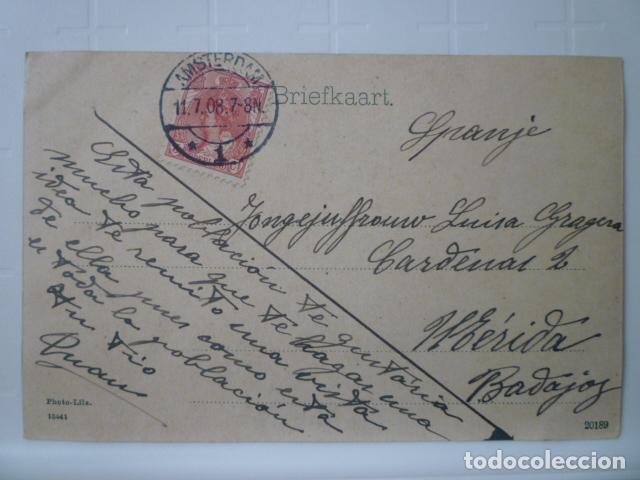 AMSTERDAM
11.7.08.7-8N.
* 1 *
Briefkaart.
Spanje
Jongejuffrouw Luisa Gragera
Cardenas 2
Mérida
Badajoz
Esta población te gustaria
mucho para que te hagas una
idea te remito una vista
de ella pues como esta
es toda la población
tu tio
Juan
Photo-Lits.
15441
20189
todocoleccion
todocoleccion.net